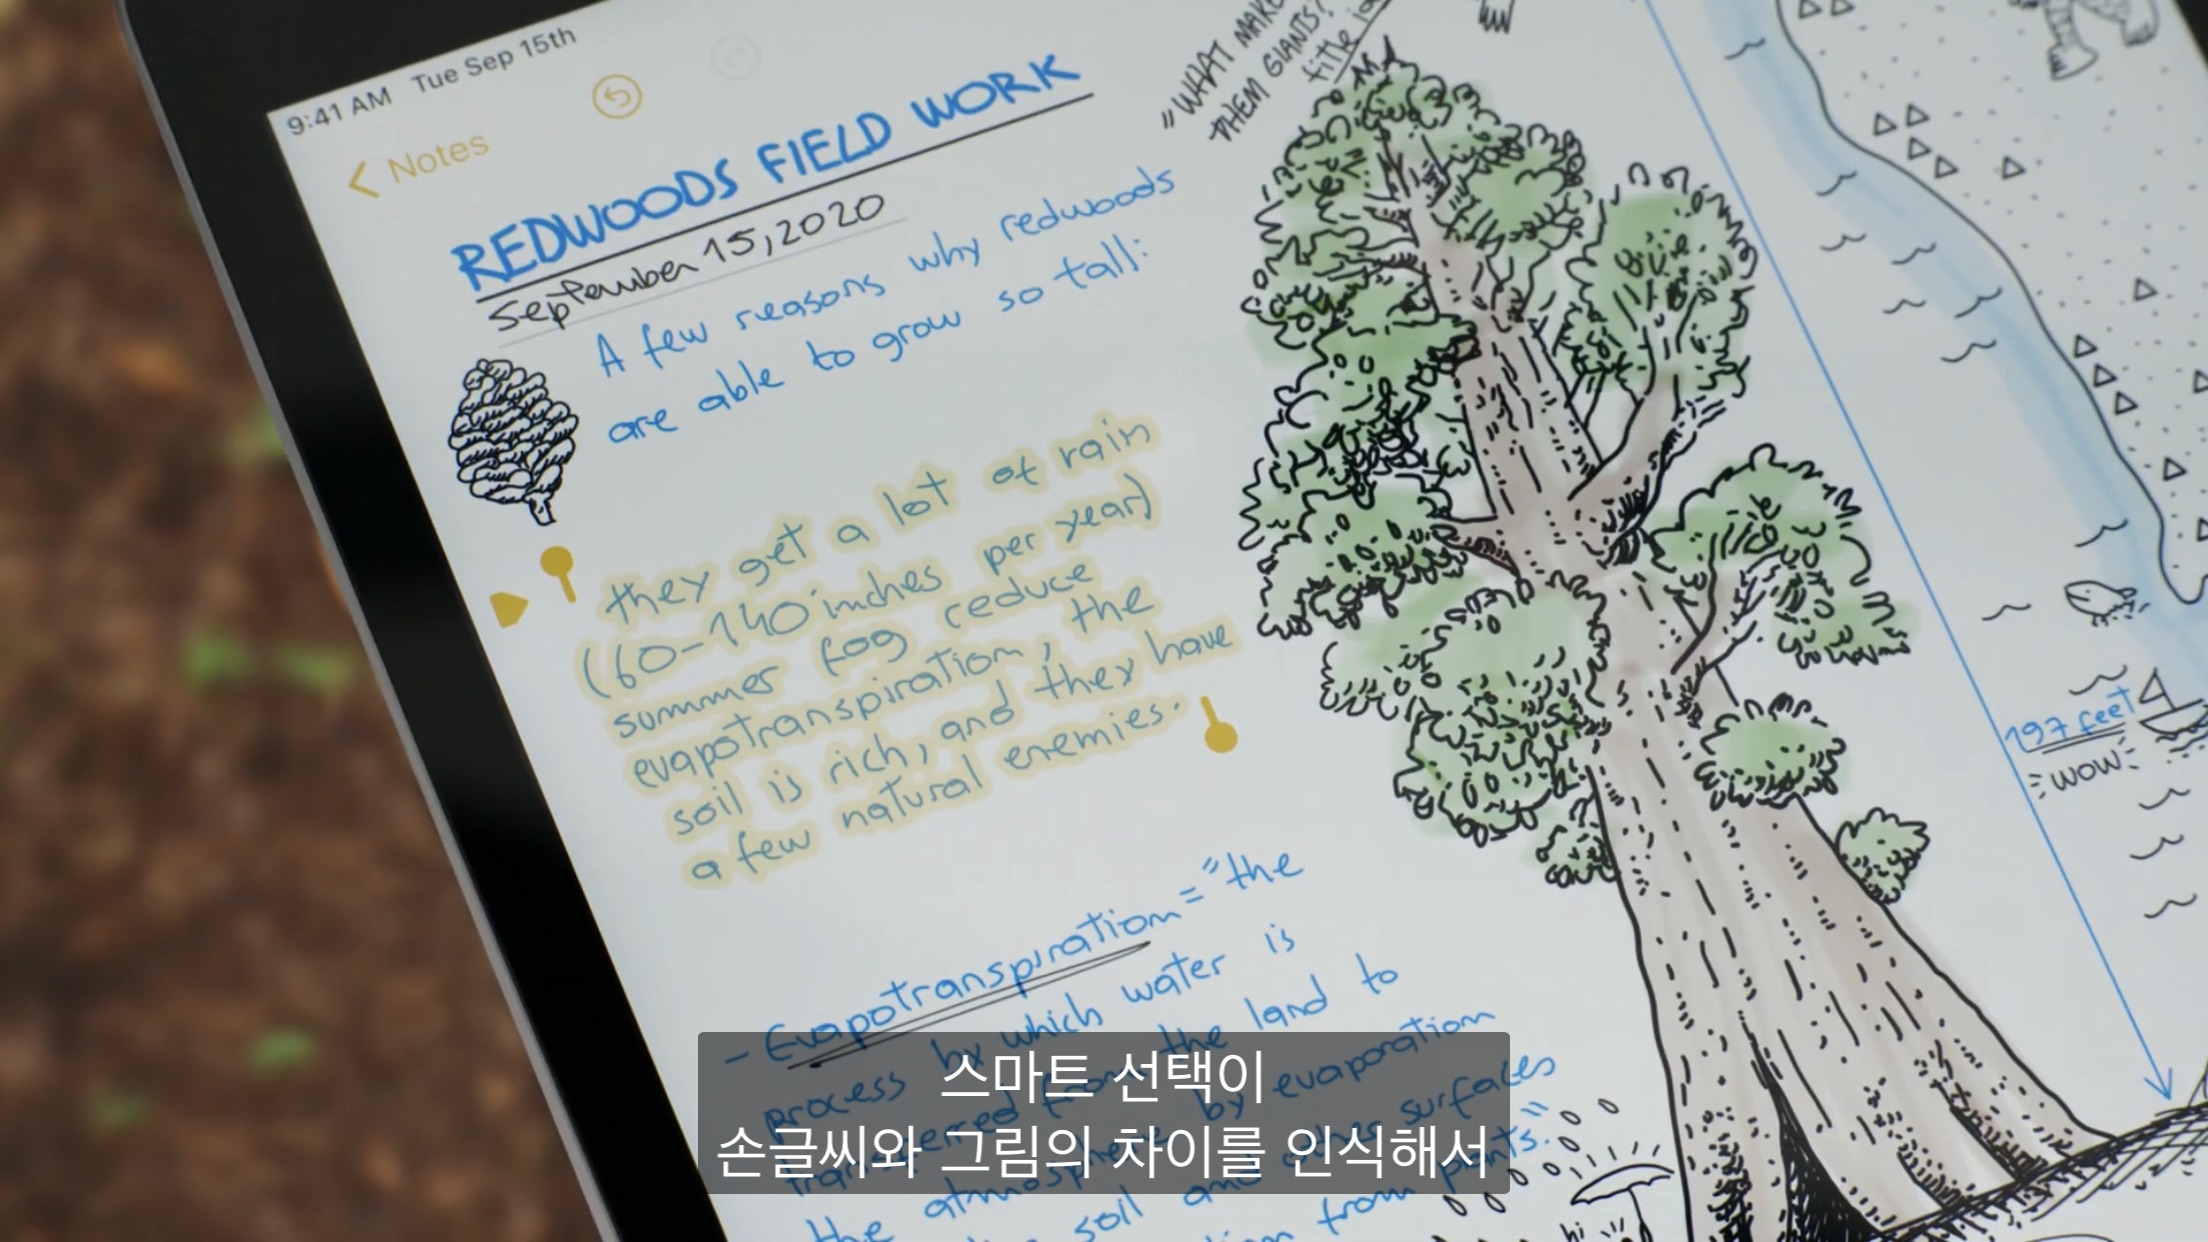 9:41 AM Tue Sep 15th
Notes
REDWOODS FIELD WORK
September 15, 2020
A few reasons why redwoods
are able to grow so tall:
they get a lot of rain
(60-140 inches per year)
summer fog reduce
evapotranspiration, the
soil is rich, and they have
a few natural enemies.
- Evapotranspiration = "the
process by which water is
transferred from the land to
the atmosphere by evaporation
soil and other surfaces
from plants."
"WHAT MAKE
THEM GIANTS?
title
197 feet
WOW
hi
스마트 선택이
손글씨와 그림의 차이를 인식해서